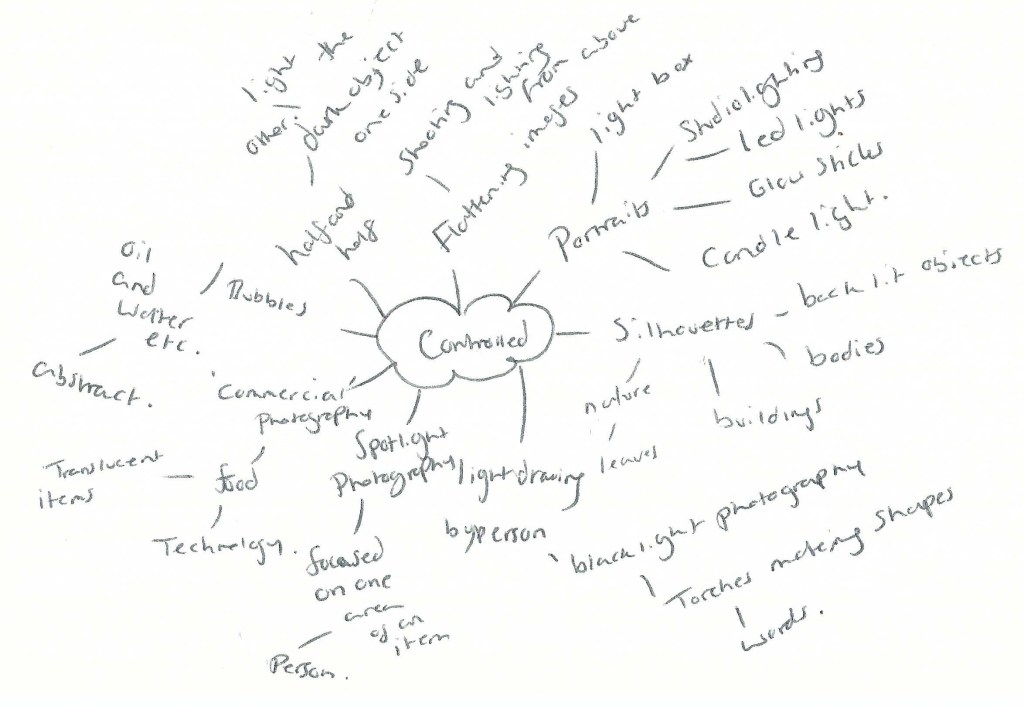 light the
other.
dark object
one side
half and
half
shooting and
lighting
from above
Flattening images
light box
Studio lighting
led lights
Glow sticks
Candle light.
Portraits
Controlled
Silhouettes
back lit objects
bodies
buildings
nature
leaves
Bubbles
oil
and
Watter
etc.
abstract.
'Commercial'
photography
food
Translucent
items
Technology.
Spotlight
Photography
focused
on one
area
of an
item
Person.
light drawing
by person
black light photography
Torches making shapes
words.